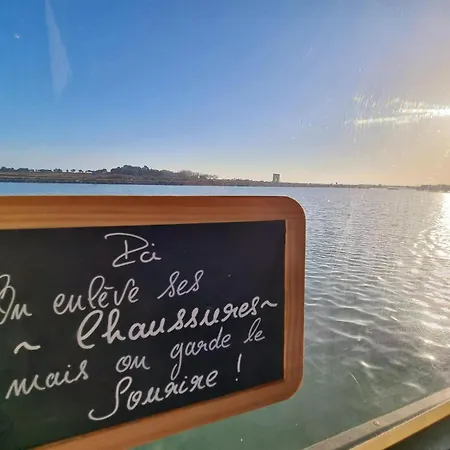 Ici
On enlève ses
~ Chaussures ~
mais on garde le
Sourire !